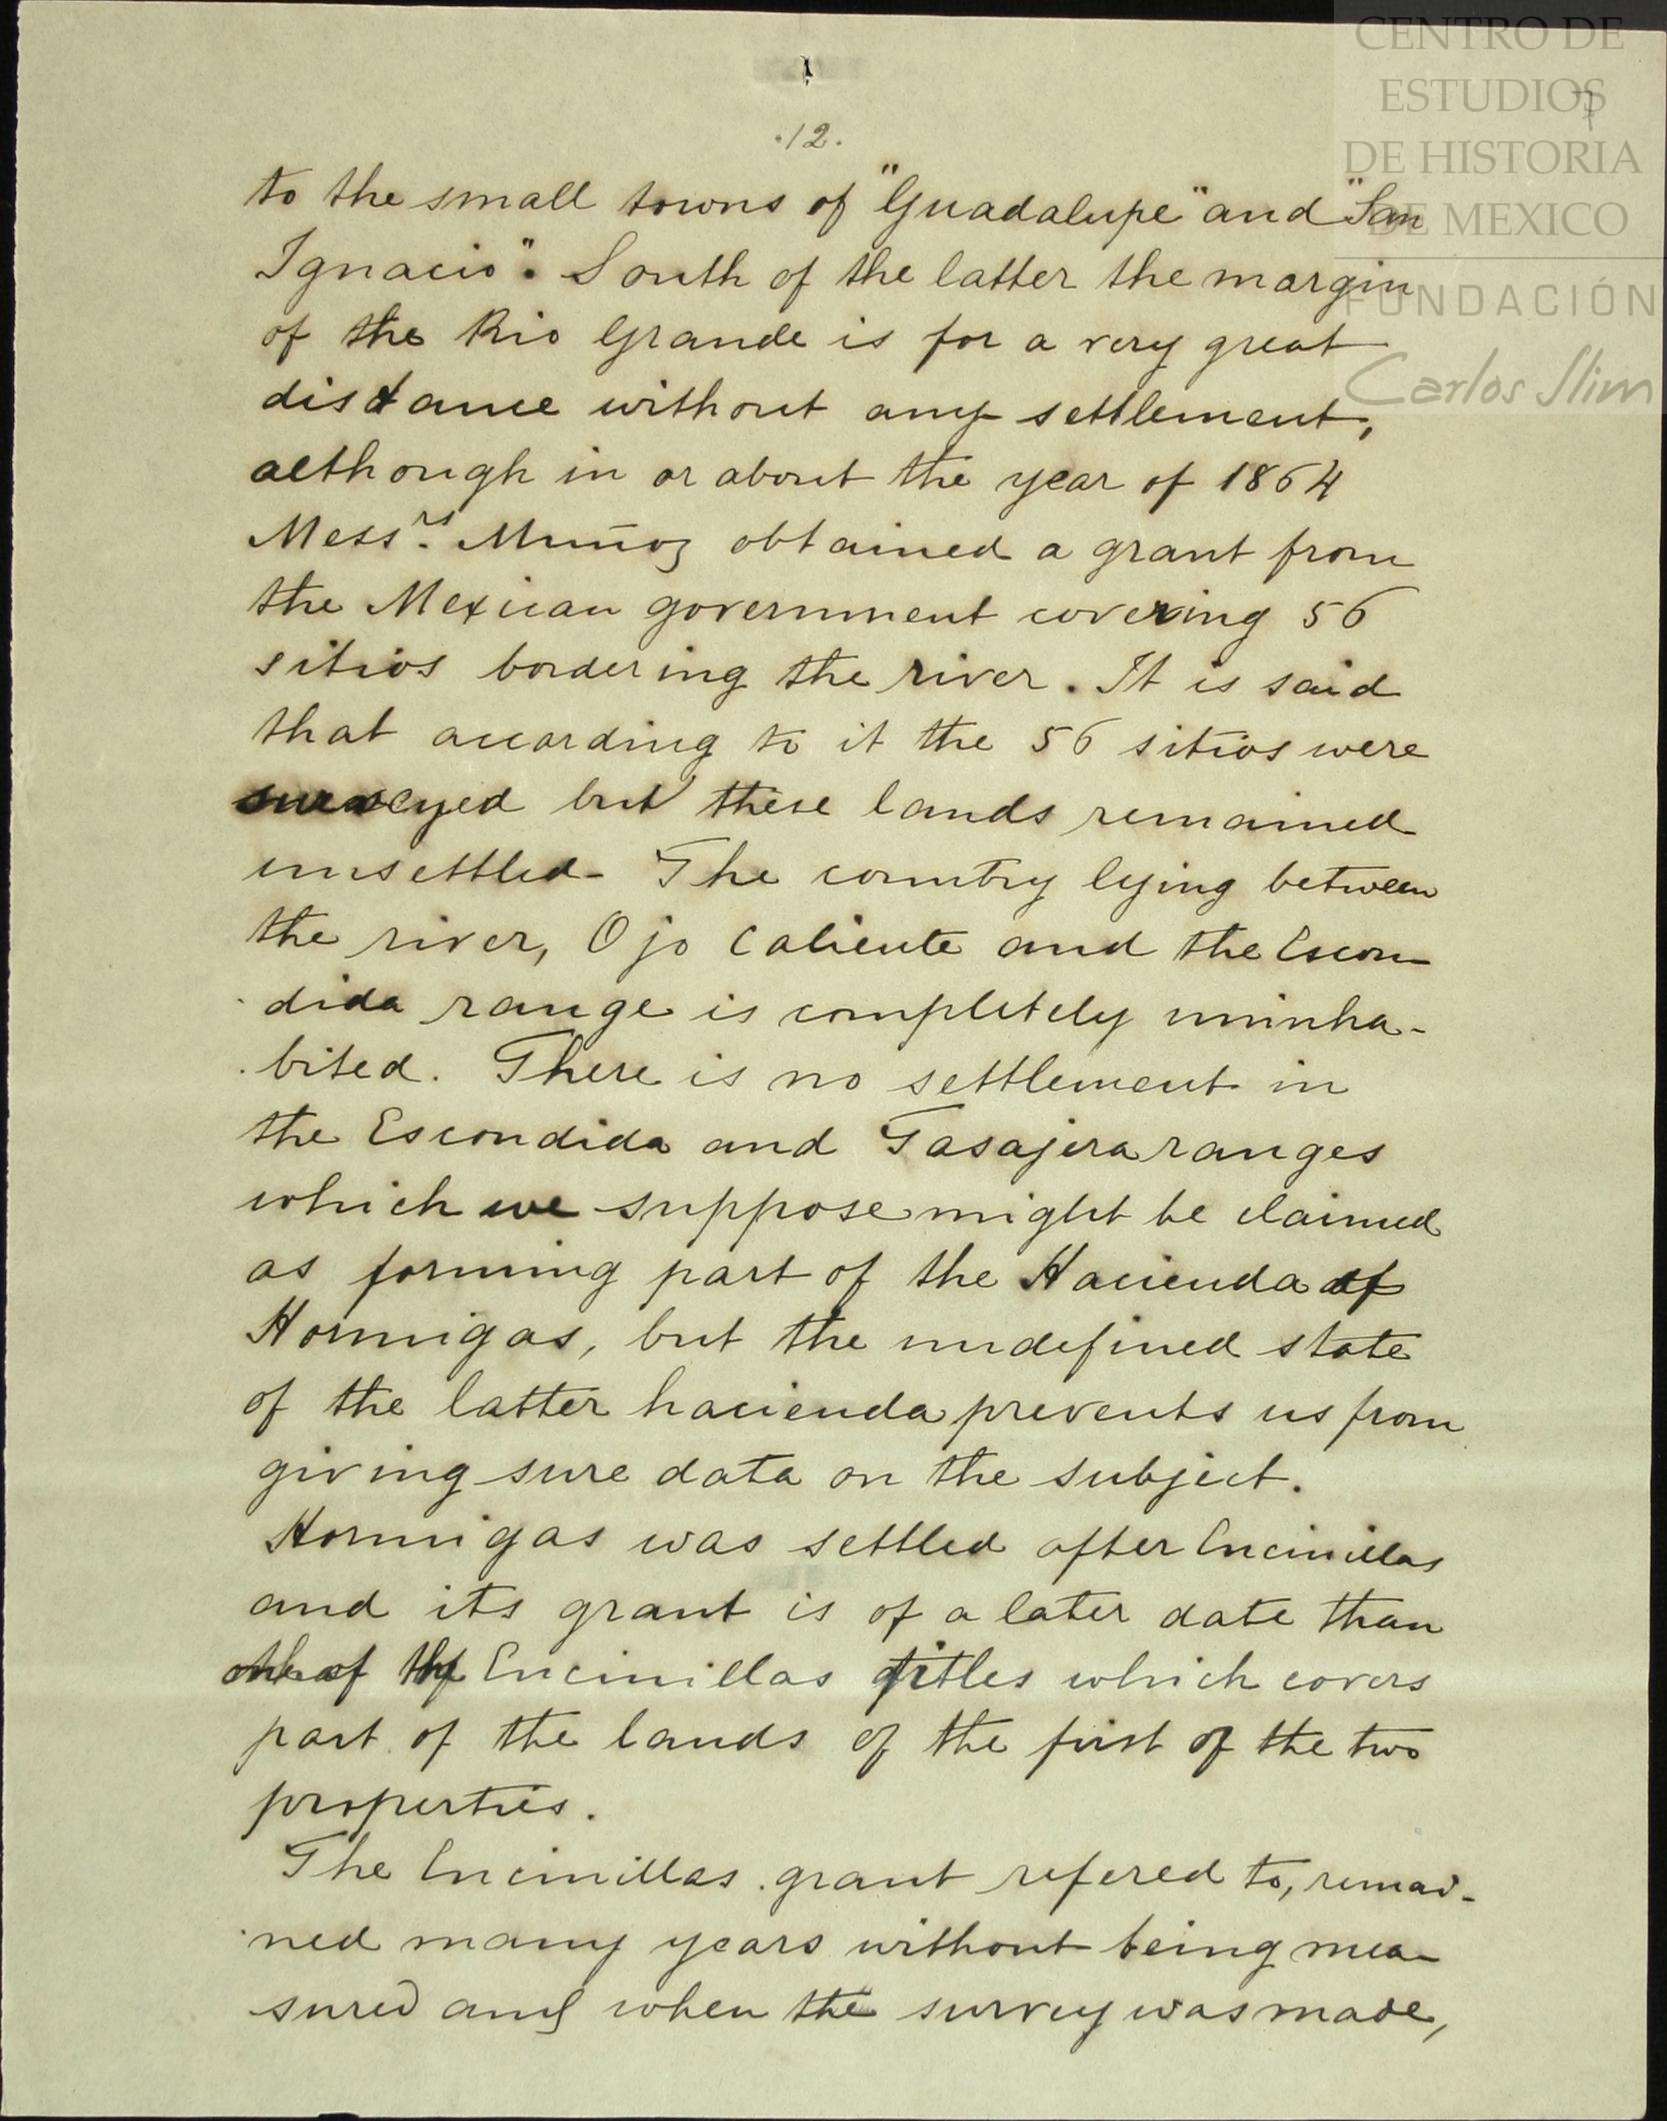 CENTRO DE
ESTUDIOS
DE HISTORIA
DE MEXICO
FUNDACIÓN
Carlos Slim
7
.12.
to the small towns of "Guadalupe" and "San
Ignacio". South of the latter the margin
of the Rio Grande is for a very great
distance without any settlement,
although in or about the year of 1864
Mess.rs Muñoz obtained a grant from
the Mexican government covering 56
sitios bordering the river. It is said
that according to it the 56 sitios were
surveyed but these lands remained
unsettled- The country lying between
the river, Ojo Caliente and the Escon-
dida range is completely uninha-
bited. There is no settlement in
the Escondida and Tasajera ranges
which we suppose might be claimed
as forming part of the Hacienda of
Hormigas, but the undefined state
of the latter hacienda prevents us from
giving sure data on the subject.
Hormigas was settled after Encinillas
and its grant is of a later date than
one of the Encinillas titles which covers
part of the lands of the first of the two
properties.
The Encinillas grant refered to, remai-
ned many years without being mea-
sured and when the survey was made,